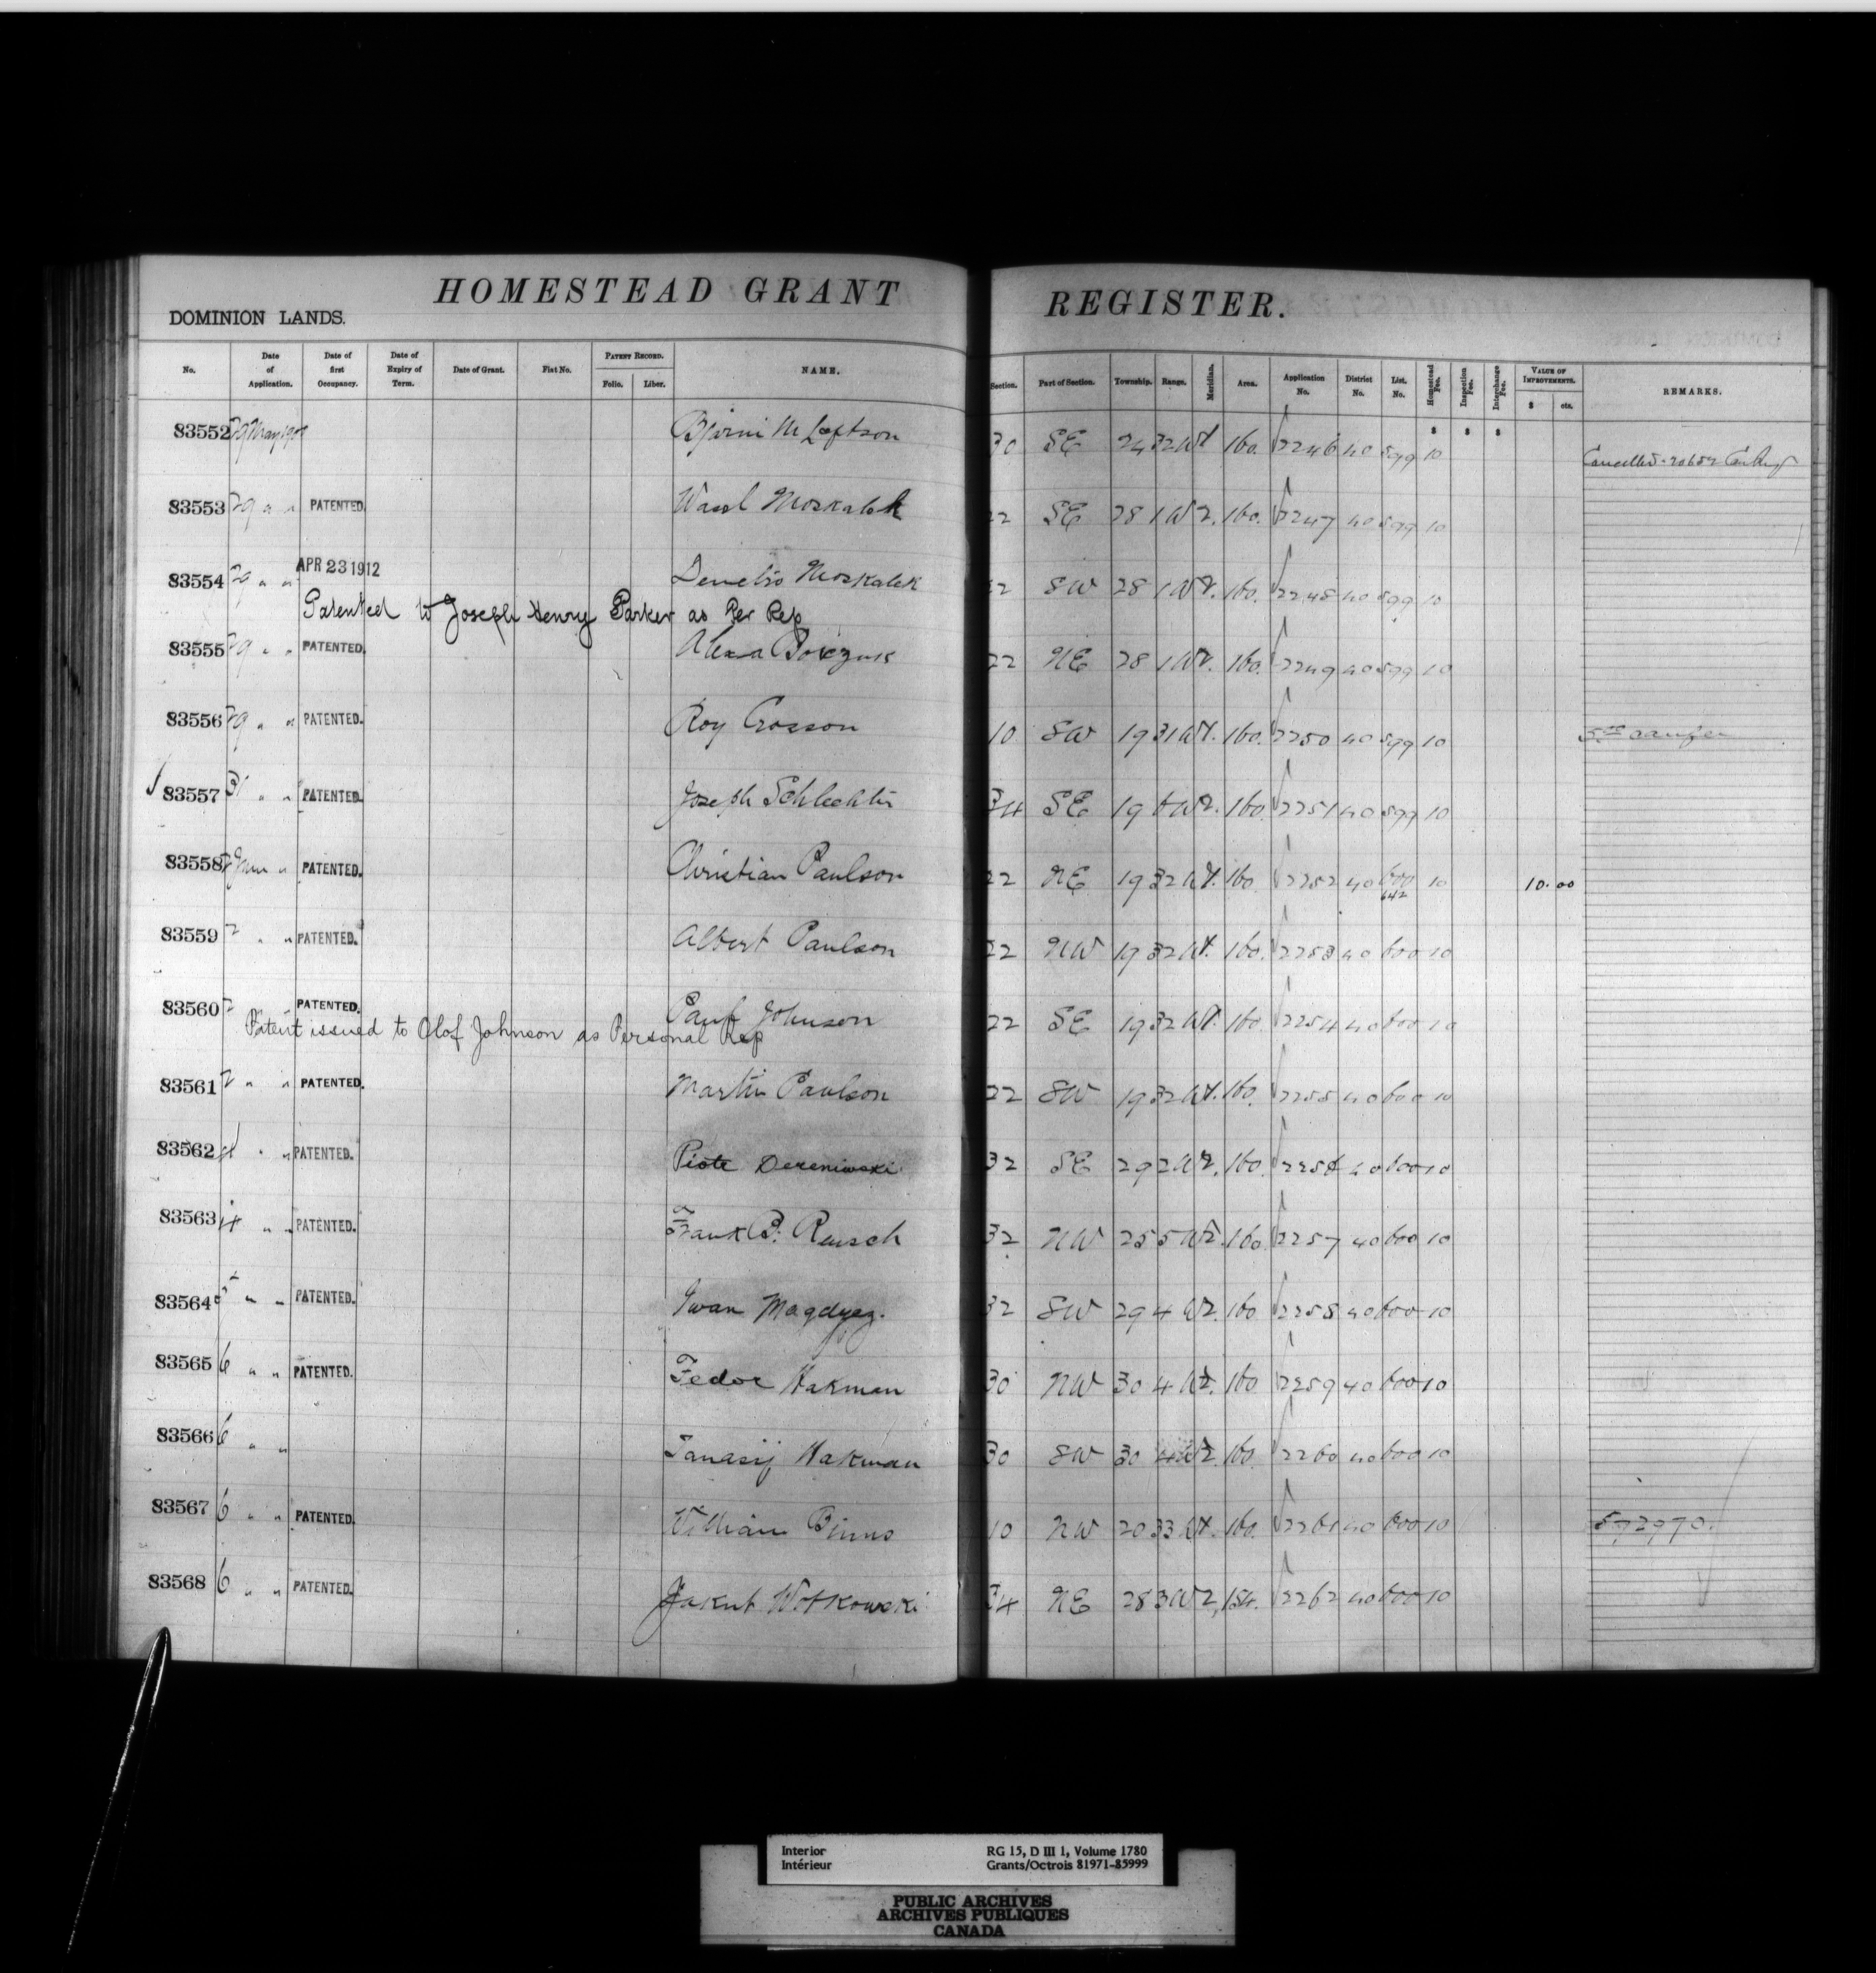 HOMESTEAD GRANT REGISTER.
DOMINION LANDS.
No. Date of Application. Date of first Occupancy. Date of Expiry of Term. Date of Grant. Fiat No. PATENT RECORD. Folio. Liber. NAME. Section. Part of Section. Township. Range. Meridian. Area. Application No. District No. List. No. Homestead Fee. Inspection Fee. Interchange Fee. VALUE OF IMPROVEMENTS. $ cts. REMARKS.
83552 29 May Bjorni M Loftson 30 SE 24 32 W1 160. 2246 40 599 10 Cancelled
83553 29 " " PATENTED. Wasl Moskalek 22 SE 28 1 W2. 160. 2247 40 599 10
83554 29 " " APR 23 1912 Demetro Moskalek 22 SW 28 1 W2. 160. 2248 40 599 10
Patented to Joseph Henry Parker as Per Rep
83555 29 " " PATENTED. Alexa 22 NE 28 1 W2. 160. 2249 40 599 10
83556 29 " " PATENTED. Roy Crosson 10 SW 19 31 W1. 160. 2250 40 599 10
83557 31 " " PATENTED. Joseph Schlechter 34 SE 19 6 W2. 160. 2251 40 599 10
83558 2 June " PATENTED. Christian Paulson 22 NE 19 32 W1. 160 2252 40 600 10 10.00
642
83559 2 " " PATENTED. Albert Paulson 22 NW 19 32 W1. 160. 2253 40 600 10
83560 2 PATENTED. Paul Johnson 22 SE 19 32 W1. 160. 2254 40 600 10
Patent issued to Olof Johnson as Personal Rep
83561 2 " " PATENTED. Martin Paulson 22 SW 19 32 W1. 160. 2255 40 600 10
83562 4 " " PATENTED. Piote Dereniwski 32 SE 29 2 W2. 160. 2256 40 600 10
83563 4 " " PATENTED. Frank B. Reusch 32 NW 25 5 W2. 160. 2257 40 600 10
83564 5 " " PATENTED. Iwan Magdyez. 32 SW 29 4 W2. 160 2258 40 600 10
83565 6 " " PATENTED. Fedor Hakman 30 NW 30 4 W2. 160 2259 40 600 10
83566 6 " " Tanasij Hakman 30 SW 30 4 W2. 160. 2260 40 600 10
83567 6 " " PATENTED. William Binns 10 NW 20 33 W1. 160. 2261 40 600 10 572970.
83568 6 " " PATENTED. Jakub Wotkowski 34 NE 28 3 W2, 154. 2262 40 600 10
Interior RG 15, D III 1, Volume 1780
Intérieur Grants/Octrois 81971-85999
PUBLIC ARCHIVES
ARCHIVES PUBLIQUES
CANADA